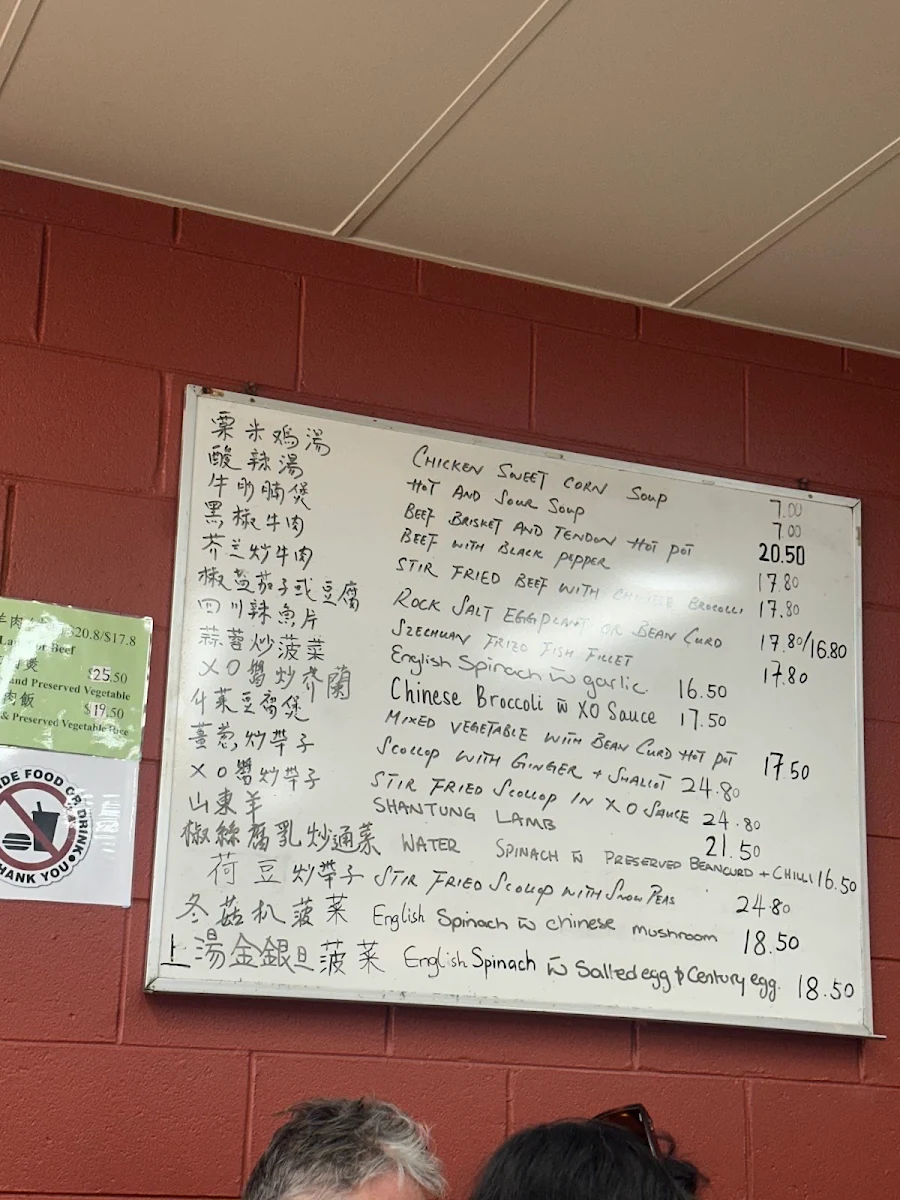 羊肉 $20.8/$17.8
Lamb or Beef
煲 $25.50
and Preserved Vegetable
肉飯 $19.50
& Preserved Vegetable Rice
FOOD OR DRINK
THANK YOU
粟米鸡湯 CHICKEN SWEET CORN SOUP 7.00
酸辣湯 HOT AND SOUR SOUP 7.00
牛肋腩煲 BEEF BRISKET AND TENDON HOT POT 20.50
黑椒牛肉 BEEF WITH BLACK PEPPER 17.80
芥兰炒牛肉 STIR FRIED BEEF WITH CHINESE BROCOLLI 17.80
椒盐茄子或豆腐 ROCK SALT EGGPLANT OR BEAN CURD 17.80/16.80
四川辣魚片 SZECHUAN FRIED FISH FILLET 17.80
蒜蓉炒菠菜 English Spinach w garlic 16.50
XO醬炒芥蘭 Chinese Broccoli w XO Sauce 17.50
什菜豆腐煲 MIXED VEGETABLE WITH BEAN CURD HOT POT 17.50
薑葱炒带子 SCOLLOP WITH GINGER + SHALLOT 24.80
XO醬炒带子 STIR FRIED SCOLLOP IN XO SAUCE 24.80
山東羊 SHANTUNG LAMB 21.50
椒絲腐乳炒通菜 WATER SPINACH w PRESERVED BEANCURD + CHILLI 16.50
荷豆炒带子 STIR FRIED SCOLLOP WITH SNOW PEAS 24.80
冬菇扒菠菜 English Spinach w chinese mushroom 18.50
上湯金銀旦菠菜 English Spinach w Salted egg & Century egg. 18.50